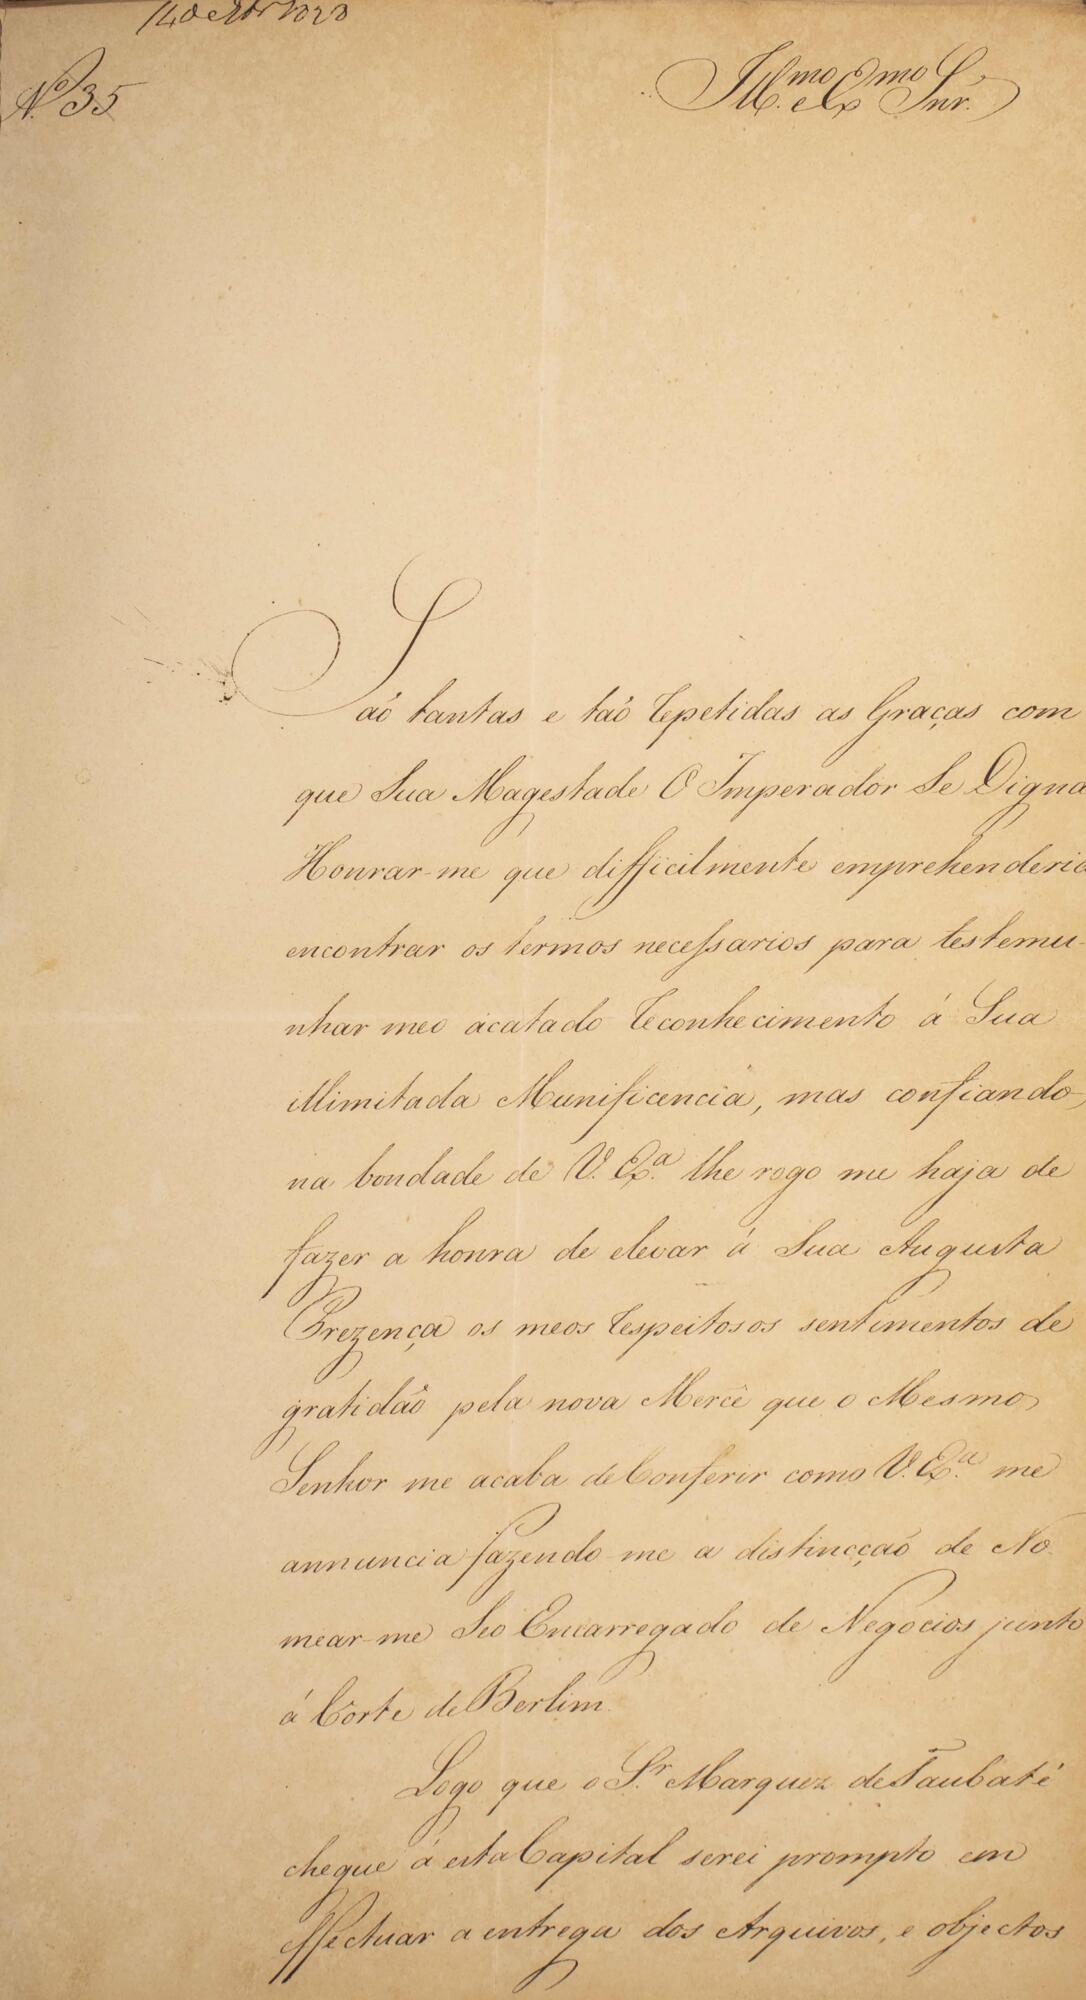 14 de 1828
Nº 35
Ill.mo e Ex.mo Snr.
São tantas e taõ repetidas as Graças com
que Sua Magestade O Imperador Se Digna
Honrar-me que difficilmente emprehenderia
encontrar os termos necessarios para testemu-
nhar meo acatado reconhecimento á Sua
illimitada Munificencia, mas confiando
na bondade de V. Ex.a lhe rogo me haja de
fazer a honra de elevar á Sua Augusta
Prezença os meos respeitosos sentimentos de
gratidaõ pela nova Mercê que o Mesmo
Senhor me acaba de Conferir como V. Ex.a me
annuncia fazendo-me a distincçaõ de No-
mear-me Seo Encarregado de Negocios junto
á Côrte de Berlim.
Logo que o S.r Marquez de Taubaté
chegue á esta Capital serei prompto em
effectuar a entrega dos Arquivos, e objectos